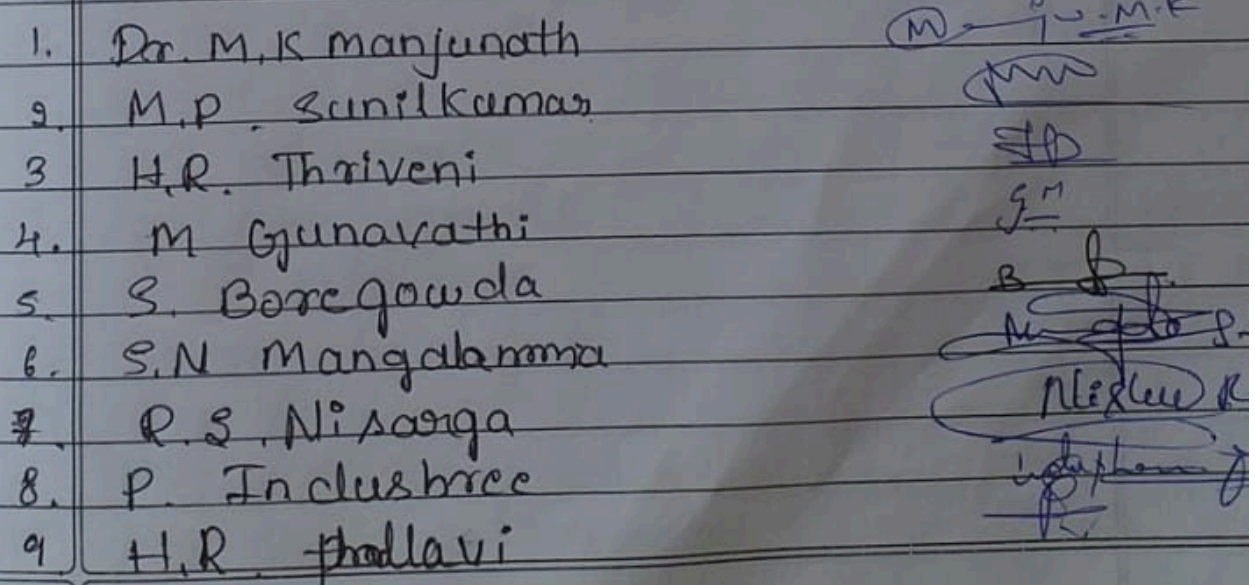 1. Dr. M.K manjunath
2. M.P. Sunilkumar
3 H.R. Thriveni
4. M Gunavathi
5. S. Boregowda
6. S.N Mangalamma
7. R.S. Nisarga
8. P. Indushree
9 H.R. phallavi